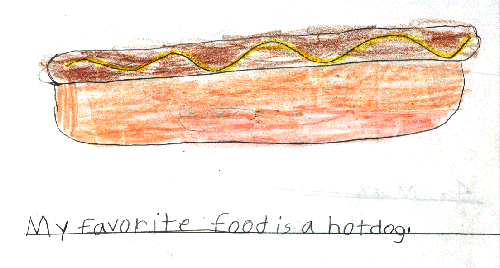 My favorite food is a hotdog.